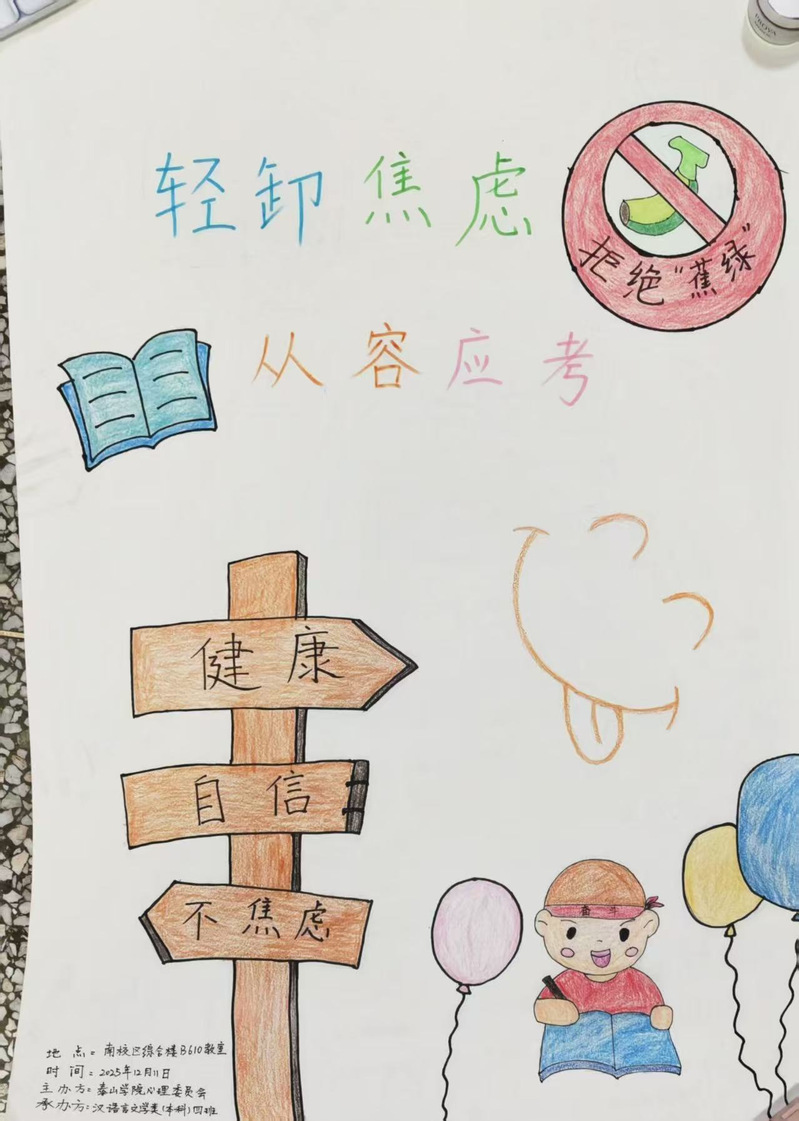 轻卸焦虑
拒绝“蕉绿”
从容应考
健康
自信
不焦虑
奋斗
地 点：南校区综合楼B610教室
时 间：2025年12月11日
主办方：泰山学院心理委员会
承办方：汉语言文学类(本科)四班